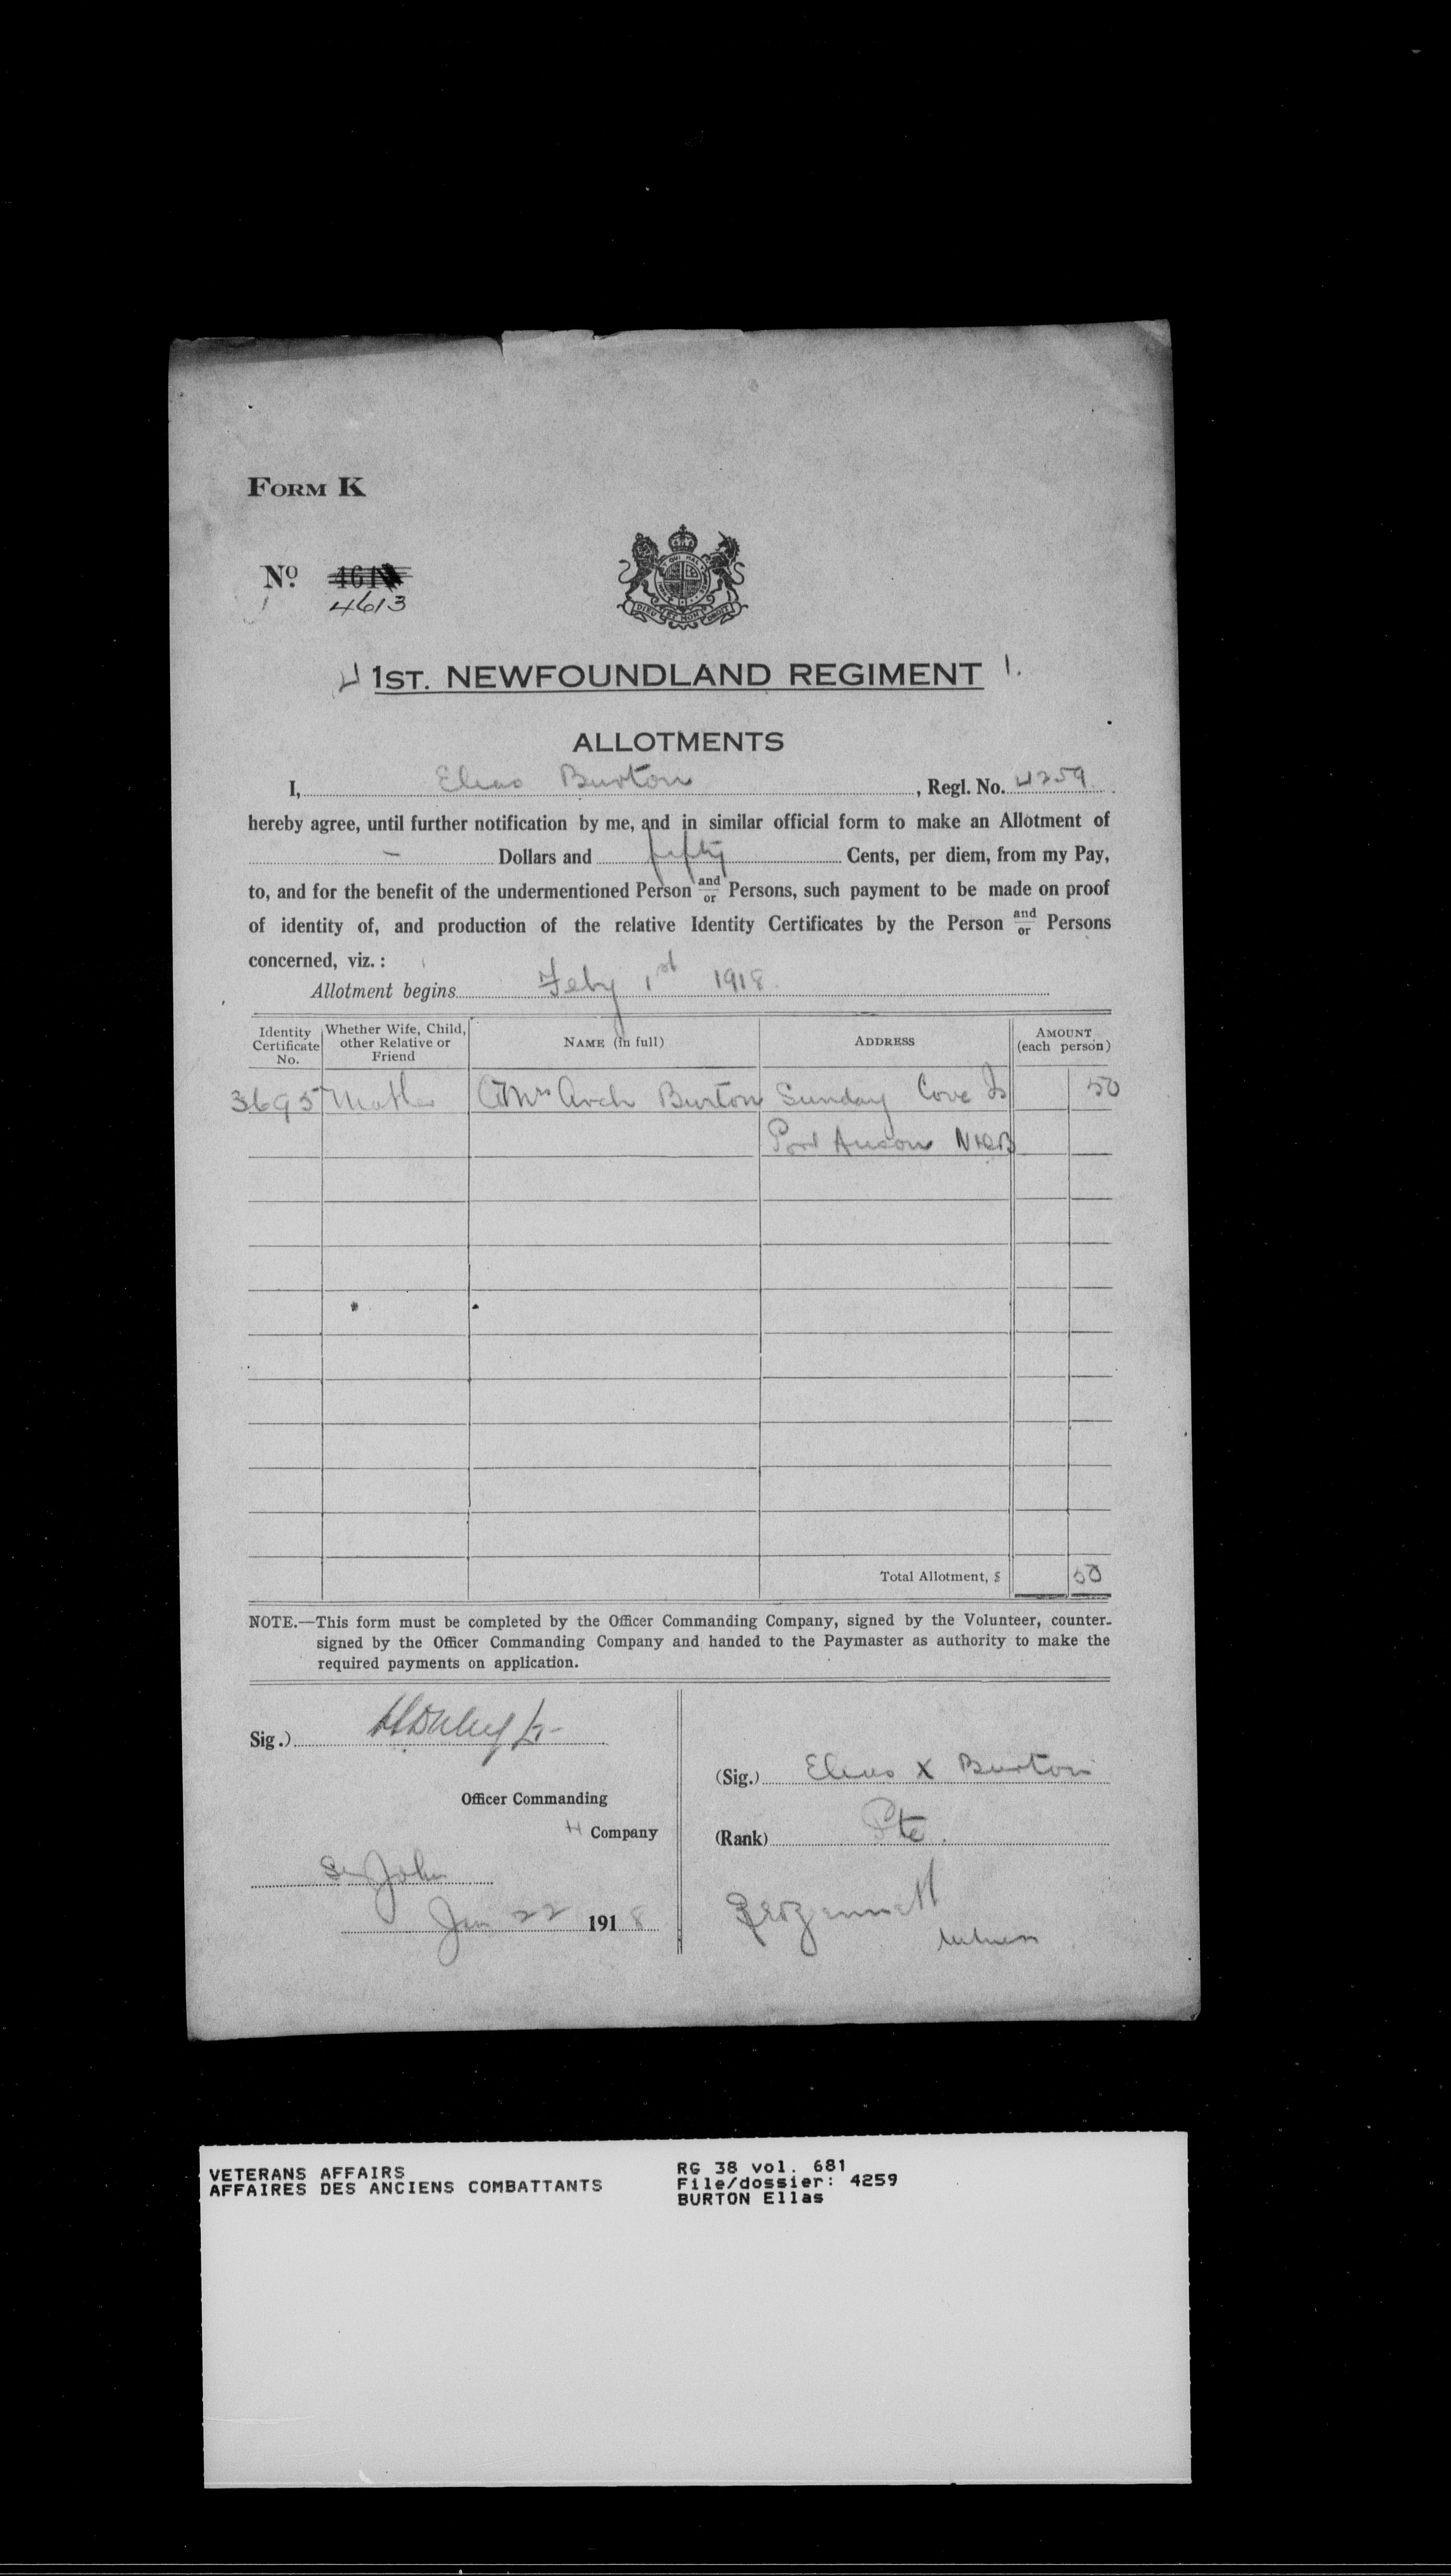 FORM K
No. 4613
1ST. NEWFOUNDLAND REGIMENT 1.
ALLOTMENTS
I, Elias Burton, Regl. No. 4259
hereby agree, until further notification by me, and in similar official form to make an Allotment of
– Dollars and fifty Cents, per diem, from my Pay,
to, and for the benefit of the undermentioned Person and/or Persons, such payment to be made on proof
of identity of, and production of the relative Identity Certificates by the Person and/or Persons
concerned, viz. :
Allotment begins Feby 1st 1918
Identity Certificate No. Whether Wife, Child, other Relative or Friend NAME (in full) ADDRESS AMOUNT (each person)
3695 Mother Mrs Arch Burton Sunday Cove Is 50
Port Anson NDB
Total Allotment, $ 50
NOTE.—This form must be completed by the Officer Commanding Company, signed by the Volunteer, counter-
signed by the Officer Commanding Company and handed to the Paymaster as authority to make the
required payments on application.
Sig.)
Officer Commanding
H Company
St John
Jan 22 1918
(Sig.) Elias X Burton
(Rank) Pte.
Witness
VETERANS AFFAIRS
AFFAIRES DES ANCIENS COMBATTANTS
RG 38 vol. 681
File/dossier: 4259
BURTON Elias